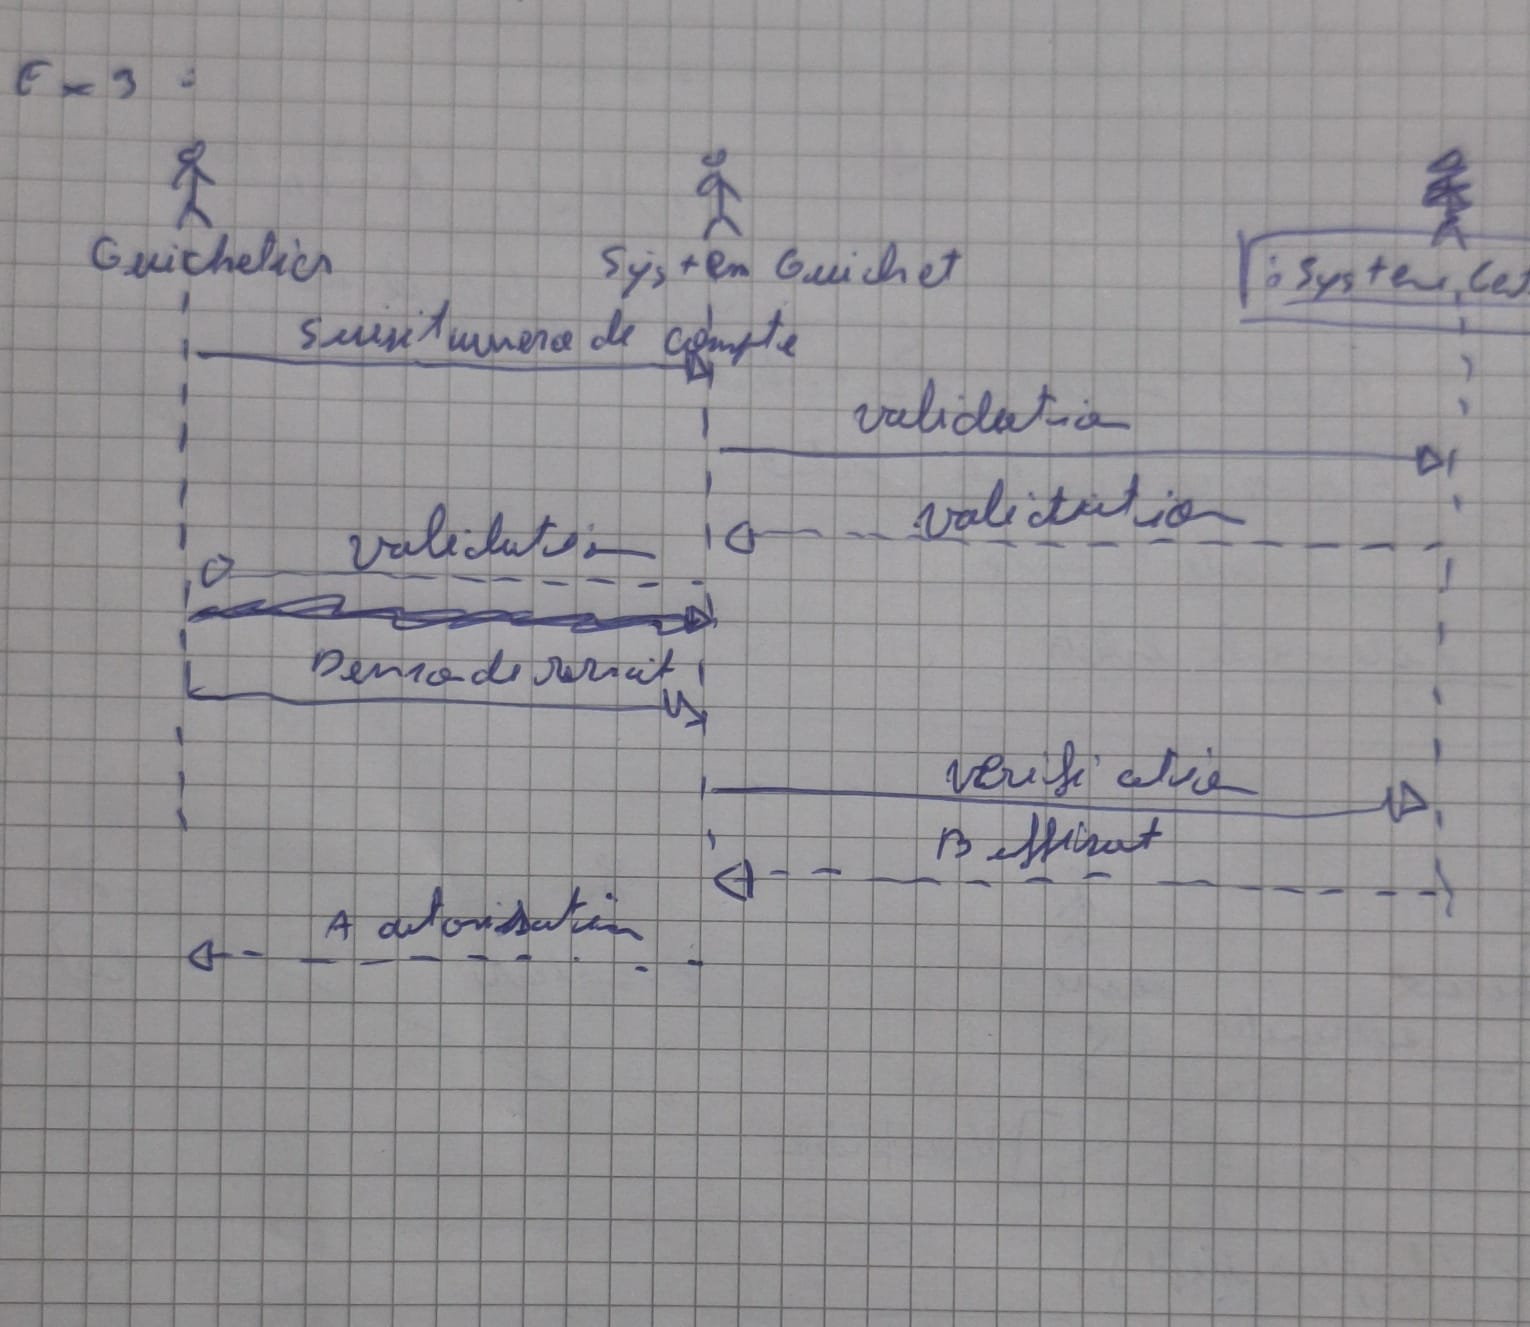 Ex 3 :
Guichetier
System Guichet
: System Cet
Saisit numero de compte
validation
validation
validation
Demande retrait
verification
B effisat
A autorisation